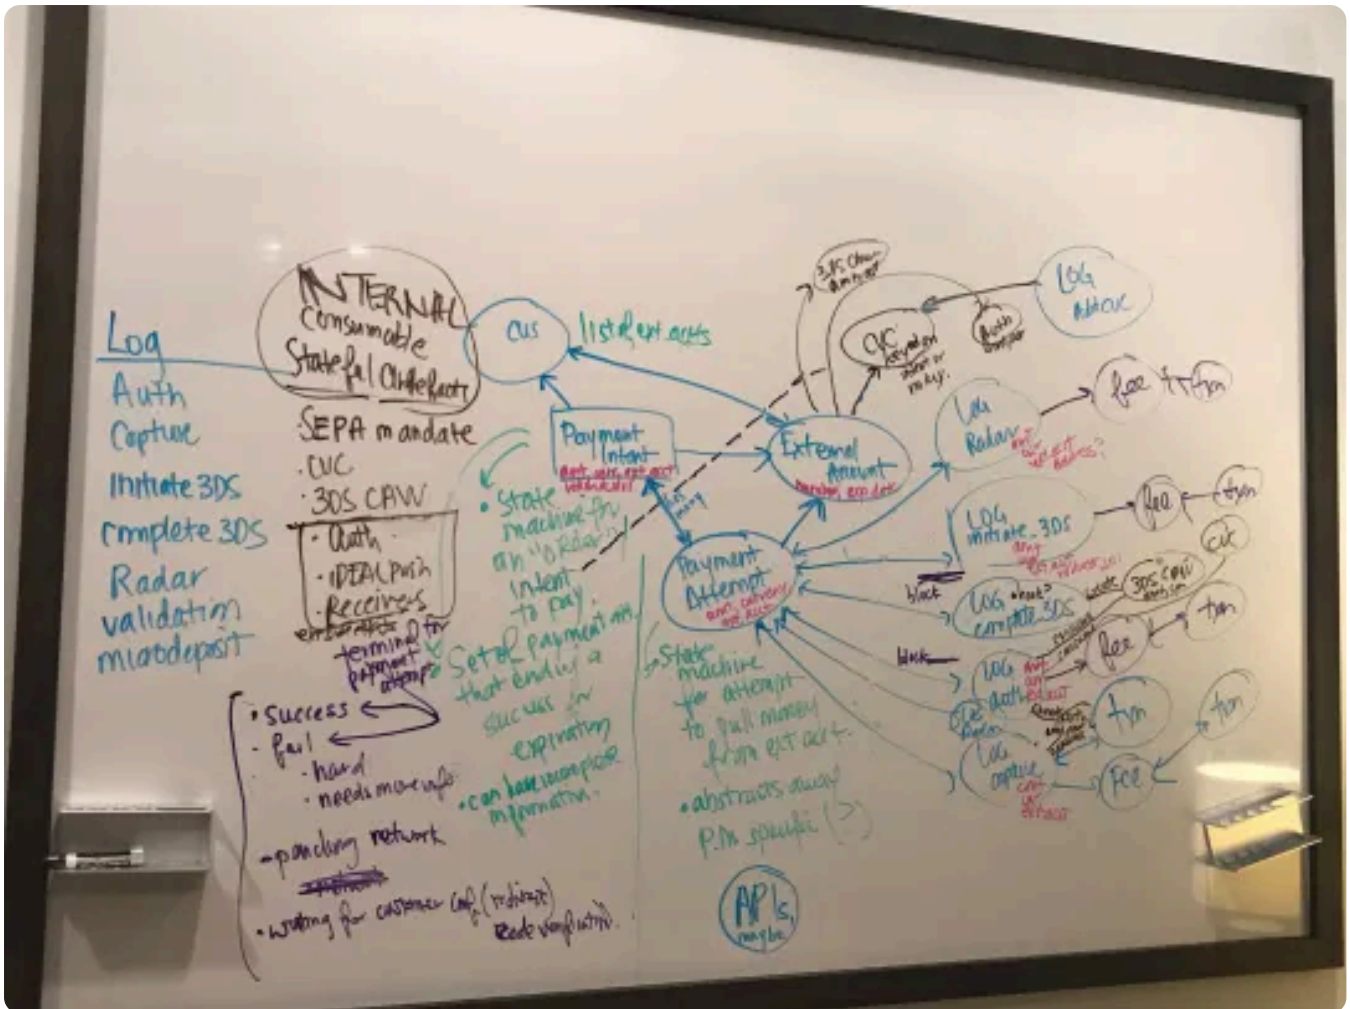 Log
Auth
Capture
Initiate 3DS
complete 3DS
Radar
validation
microdeposit
INTERNAL
Consumable
Stateful
SEPA mandate
· CVC
· 3DS CAVV
· Auth
· iDEAL Push
· Receivers
terminal for
payment
attempt
· success
· fail
· hard
· needs more info
pending network
· waiting for customer conf. (redirect)
code verification.
cus
list of ext accts
Payment
Intent
has
many
· State
machine for
an "order"
Intent
to pay.
Set of payment
that end in a
success or
expiration
· can have incomplete
information.
External
Account
number, exp date
Payment
Attempt
amt, currency
ext acct
State
machine
for attempt
to pull money
from ext acct.
· abstracts away
P.M specific (?)
APIs,
maybe
3DS
CVC
Auth
LOG
LOG
Radar
amt
ext acct
address?
fee
txn
LOG
initiate_3DS
amt
fee
txn
block
LOG
complete_3DS
3DS CAVV
cvc
block
LOG
auth
amt
ext acct
fee
txn
txn
LOG
capture
ext acct
fee
txn